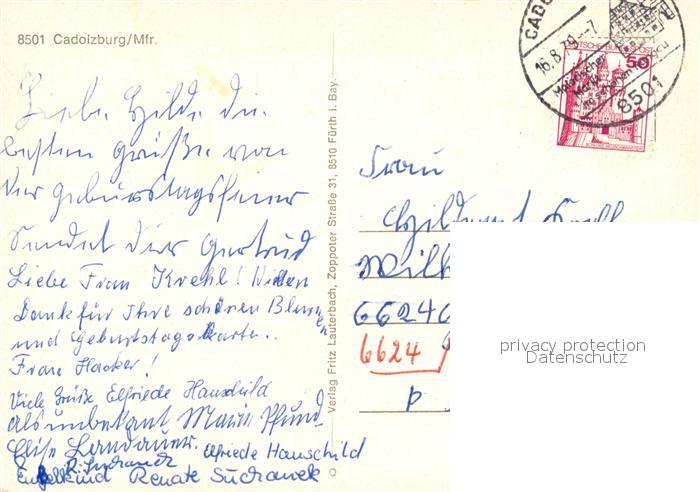 8501 Cadolzburg/Mfr.
Liebe Hilde die
besten Grüße von
der Geburtstagsfeier
Sendet dir Gertrud
Liebe Frau Krehl! Vielen
Dank für Ihre schönen Blumen
und Geburtstagskarten..
Frau Hacker!
Viele Grüße Elfriede Hauschild
Als unbekannt Maria Pfund
Elise Landauer. Elfriede Hauschild
Renate Suchanek
Verlag Fritz Lauterbach, Zoppoter Straße 31, 8510 Fürth i. Bay.
CADO
16.8.79-7
Malerischer
Markt
8501
DEUTSCHE BUNDESPOST
50
Frau
Wilh
66240
6624
privacy protection
Datenschutz